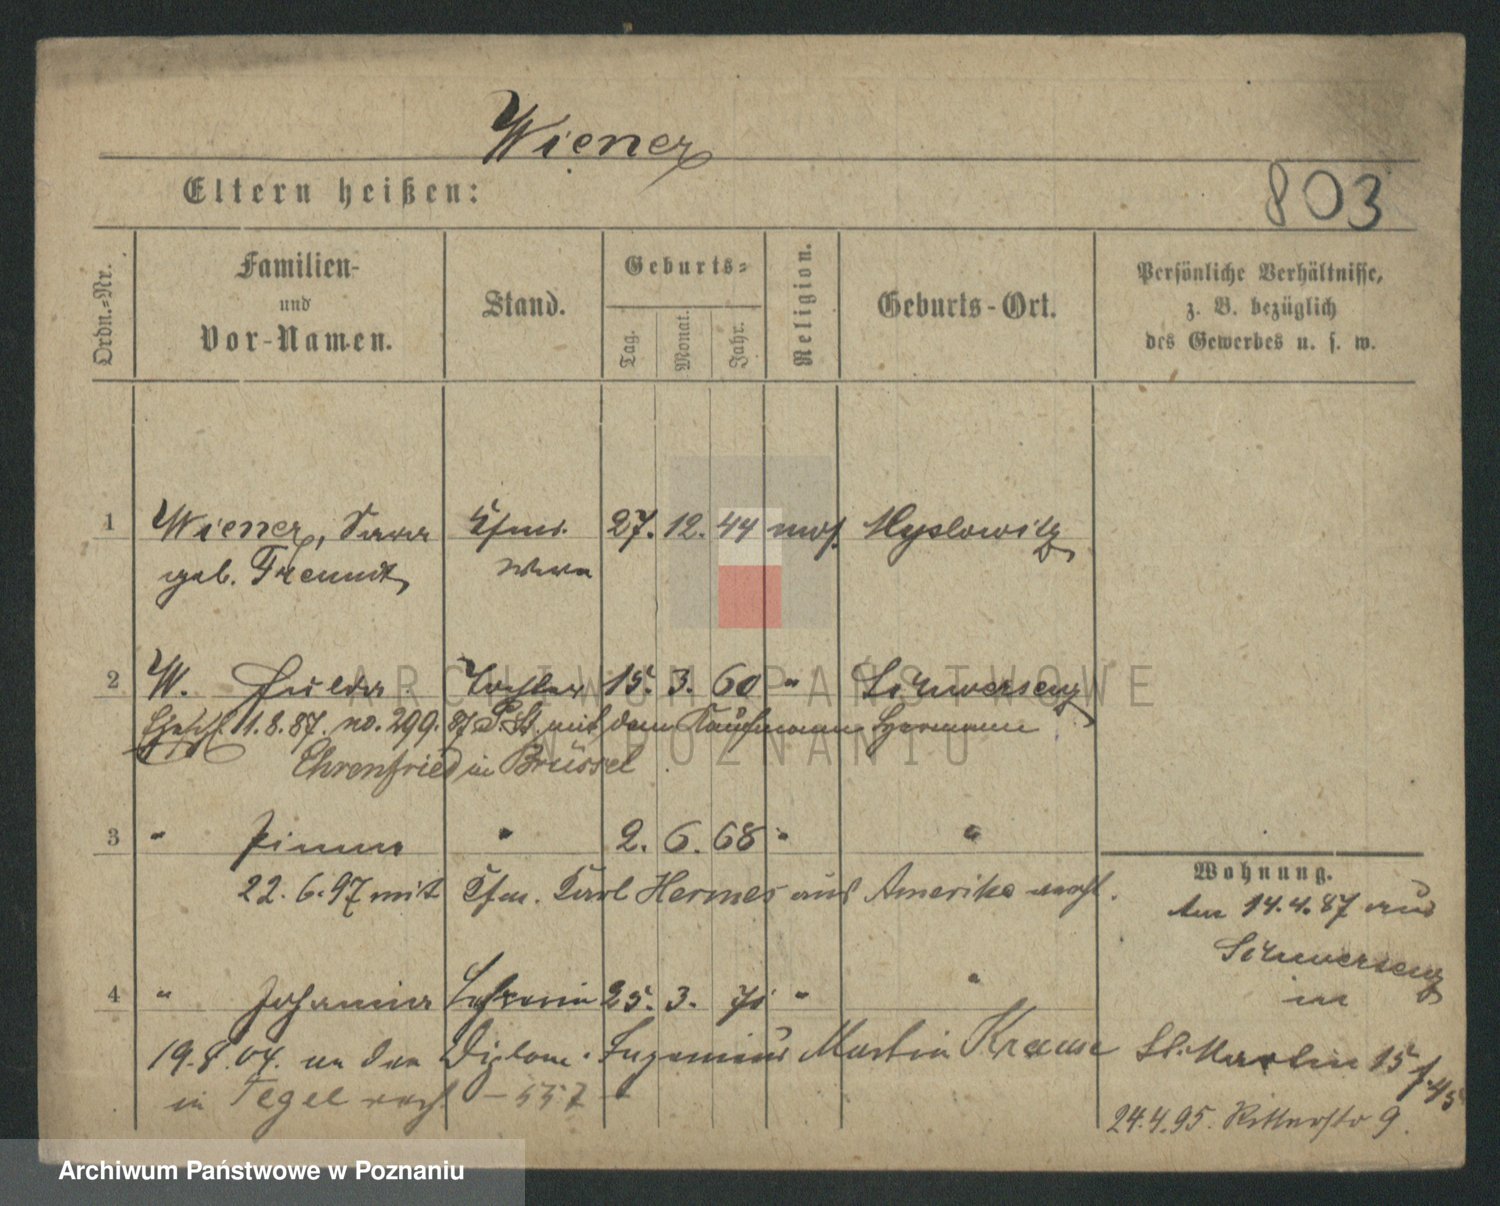 Wiener
Eltern heißen:
803
Ordn.-Nr.
Familien-
und
Vor-Namen.
Stand.
Geburts-
Tag. Monat. Jahr.
Religion.
Geburts-Ort.
Persönliche Verhältnisse,
z. B. bezüglich
des Gewerbes u. s. w.
1 Wiener, Sara Kfm. 27. 12. 44 mos. Myslowitz
geb. Freund, wwe
2 W. Hulda Tochter 15. 3. 60 " Schwersenz
11.8.87. no. 299. 87 P. St. mit dem Kaufmann Hermann
Ehrenfried in Brüssel
3 " " 2. 6. 68 " "
22. 6. 97 mit Kfm. Karl Hermes aus Amerika verh.
4 " Johanna Lehrerin 25. 3. "  "
19.8.04. an den Diplom. Ingenieur Martin Krause
in Tegel verh. – 557 –
Wohnung.
Am 14.4.87 aus
Schwersenz
in
St. Martin 15
24.4.95. Ritterstr 9.
ARCHIWUM PAŃSTWOWE
W POZNANIU
Archiwum Państwowe w Poznaniu